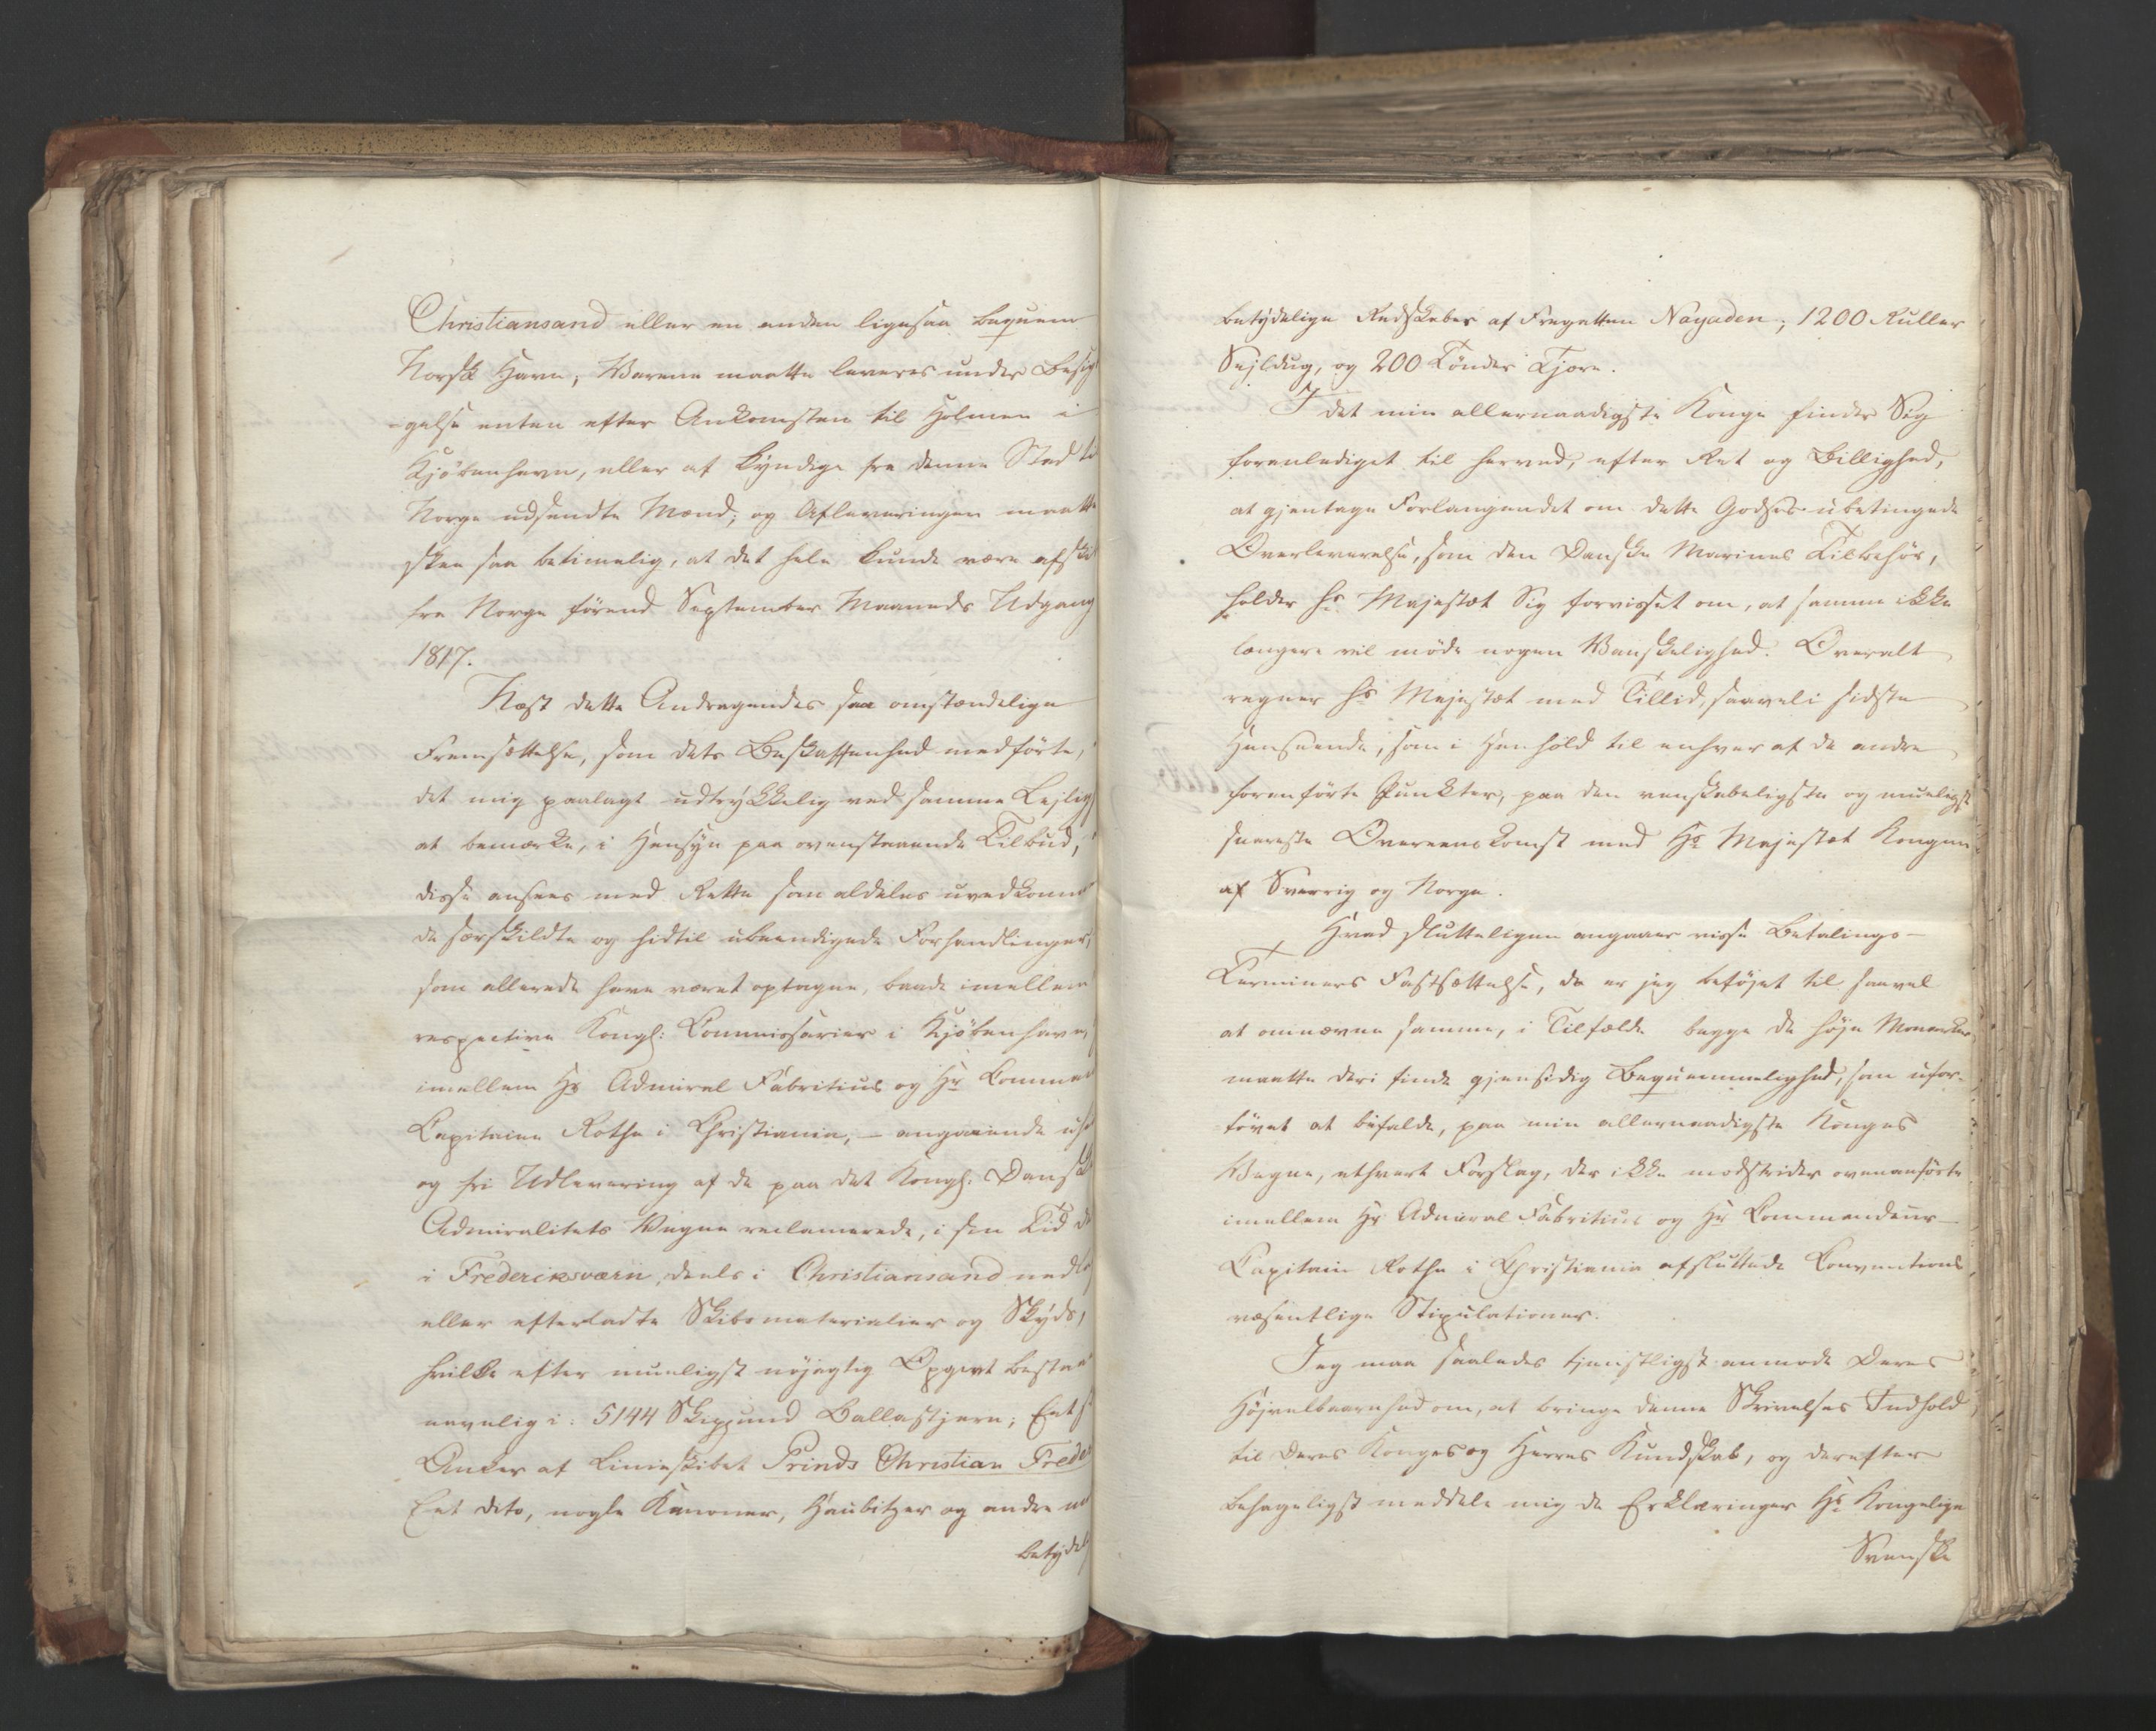 Christiansand eller en anden ligesaa beqvem
Norsk Havn; Varene maatte leveres under Besig
gelse enten efter Ankomsten til Holmen i
Kjöbenhavn, eller af kyndige fra denne Stad ti
Norge udsendte Mænd; og Afleveringen maatte
skee saa betimelig, at det hele kunde være afski
fra Norge förend September Maaneds Udgang
1817.
Næst dette Andragendes saa omstændelige
Fremsættelse, som dets Beskaffenhed medförte,
det mig paalagt udtrykkelig ved samme Lejlig
at bemærke, i Hensyn paa ovenstaaende Tilbud,
disse ansees med Rette som aldeles uvedkomme
de særskildte og hidtil ubeendigede Forhandlinger,
som allerede have været optagne, baade imellem
respective Kongl: Commissarier i Kjöbenhavn,
imellem Hr Admiral Fabritius og Hr Comman
Capitaine Rothe i Christiania, – angaaende
og fri Udlevering af de paa det Kongl. Dansk
Admiralitets Vegne reclamerede, i sin Tid de
i Frederiksværn, deels i Christiansand nedla
eller efterladte Skibsmaterialier og Skyds,
hvilke efter mueligst nöjagtig Opgivt bestaa
navnlig i: 5144 Skippund Ballastjern; Eet
Anker af Linieskibet Prinds Christian Frede
Eet dito, nogle Kanoner, Haubitzer og andre
betydel
betydelige Redskaber af Fregatten Nayaden; 1200 Ruller
Sejldug, og 200 Tönder Tjære.
I det min allernaadigste Konge finder Sig
foranlediget til herved, efter Ret og Billighed,
at gjentage Forlangendet om dette Godses ubetingede
Overleverelse, som den Danske Marines Tilbehör,
holder Hs Majestæt Sig forvisset om, at samme ikke
længere vil möde nogen Vanskelighed. Overalt
regner Hs Majestæt med Tillid, saavel i sidste
Henseende, som i Henhold til enhver af de andre
foranförte Punkter, paa den venskabeligste og mueligst
snareste Overeenskomst med Hs Majestæt Kongen
af Sverrig og Norge.
Hvad slutteligen angaaer visse Betalings-
Terminers Fastsættelse, da er jeg beföjet til saavel
at omnævne samme, i Tilfælde begge de höje Monarker
maatte deri finde gjensidig Beqvemmelighed, som ufor-
tövet at bifalde, paa min allernaadigste Konges
Vegne, ethvert Forslag, der ikke modstrider ovenanförte
imellem Hr Admiral Fabritius og Hr Commandeur-
Capitain Rothe i Christiania afsluttede Conventions
væsentlige Stipulationer.
Jeg maa saaledes tjenstligst anmode Deres
Höjvelbaarenhed om, at bringe denne Skrivelses Indhold
til Deres Konges og Herres Kundskab, og derefter
behageligst meddele mig de Erklæringer Hs Kongelige
Svenske